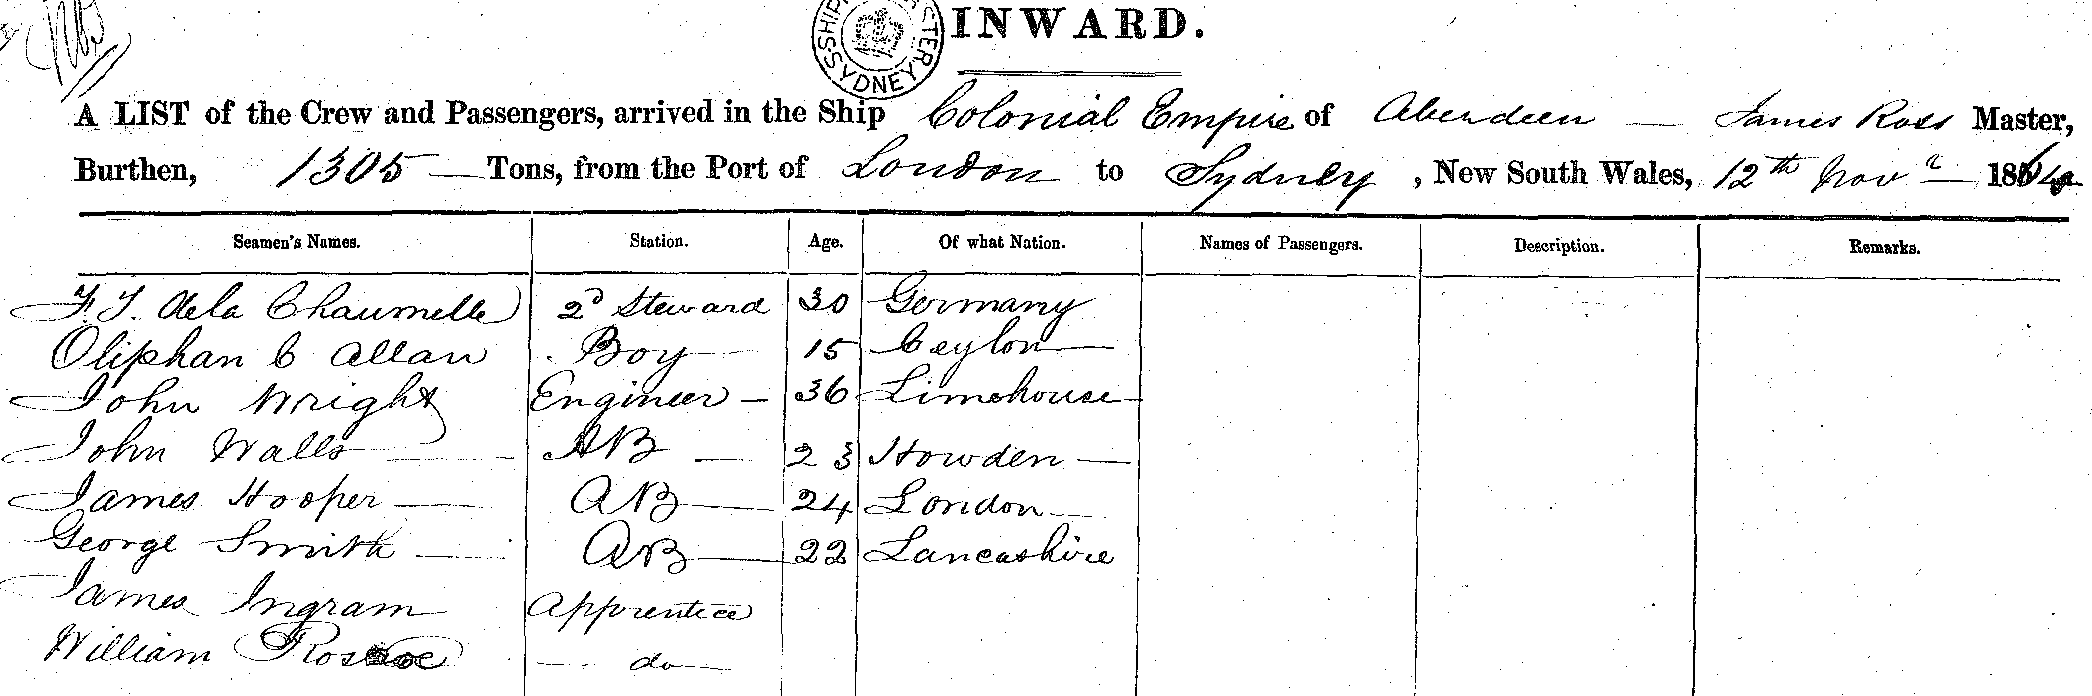 INWARD.
A LIST of the Crew and Passengers, arrived in the Ship Colonial Empire of Aberdeen — James Ross Master,
Burthen, 1305 — Tons, from the Port of London to Sydney, New South Wales, 12th Novr — 186
Seamen's Names. Station. Age. Of what Nation. Names of Passengers. Description. Remarks.
F. J. de la Chaumelle 2d Steward 30 Germany
Oliphan C Allan Boy 15 Ceylon
John Wright Engineer 36 Limehouse
John Walls AB 23 Howden
James Hooper AB 24 London
George Smith AB 22 Lancashire
James Ingram Apprentice
William Roscoe do